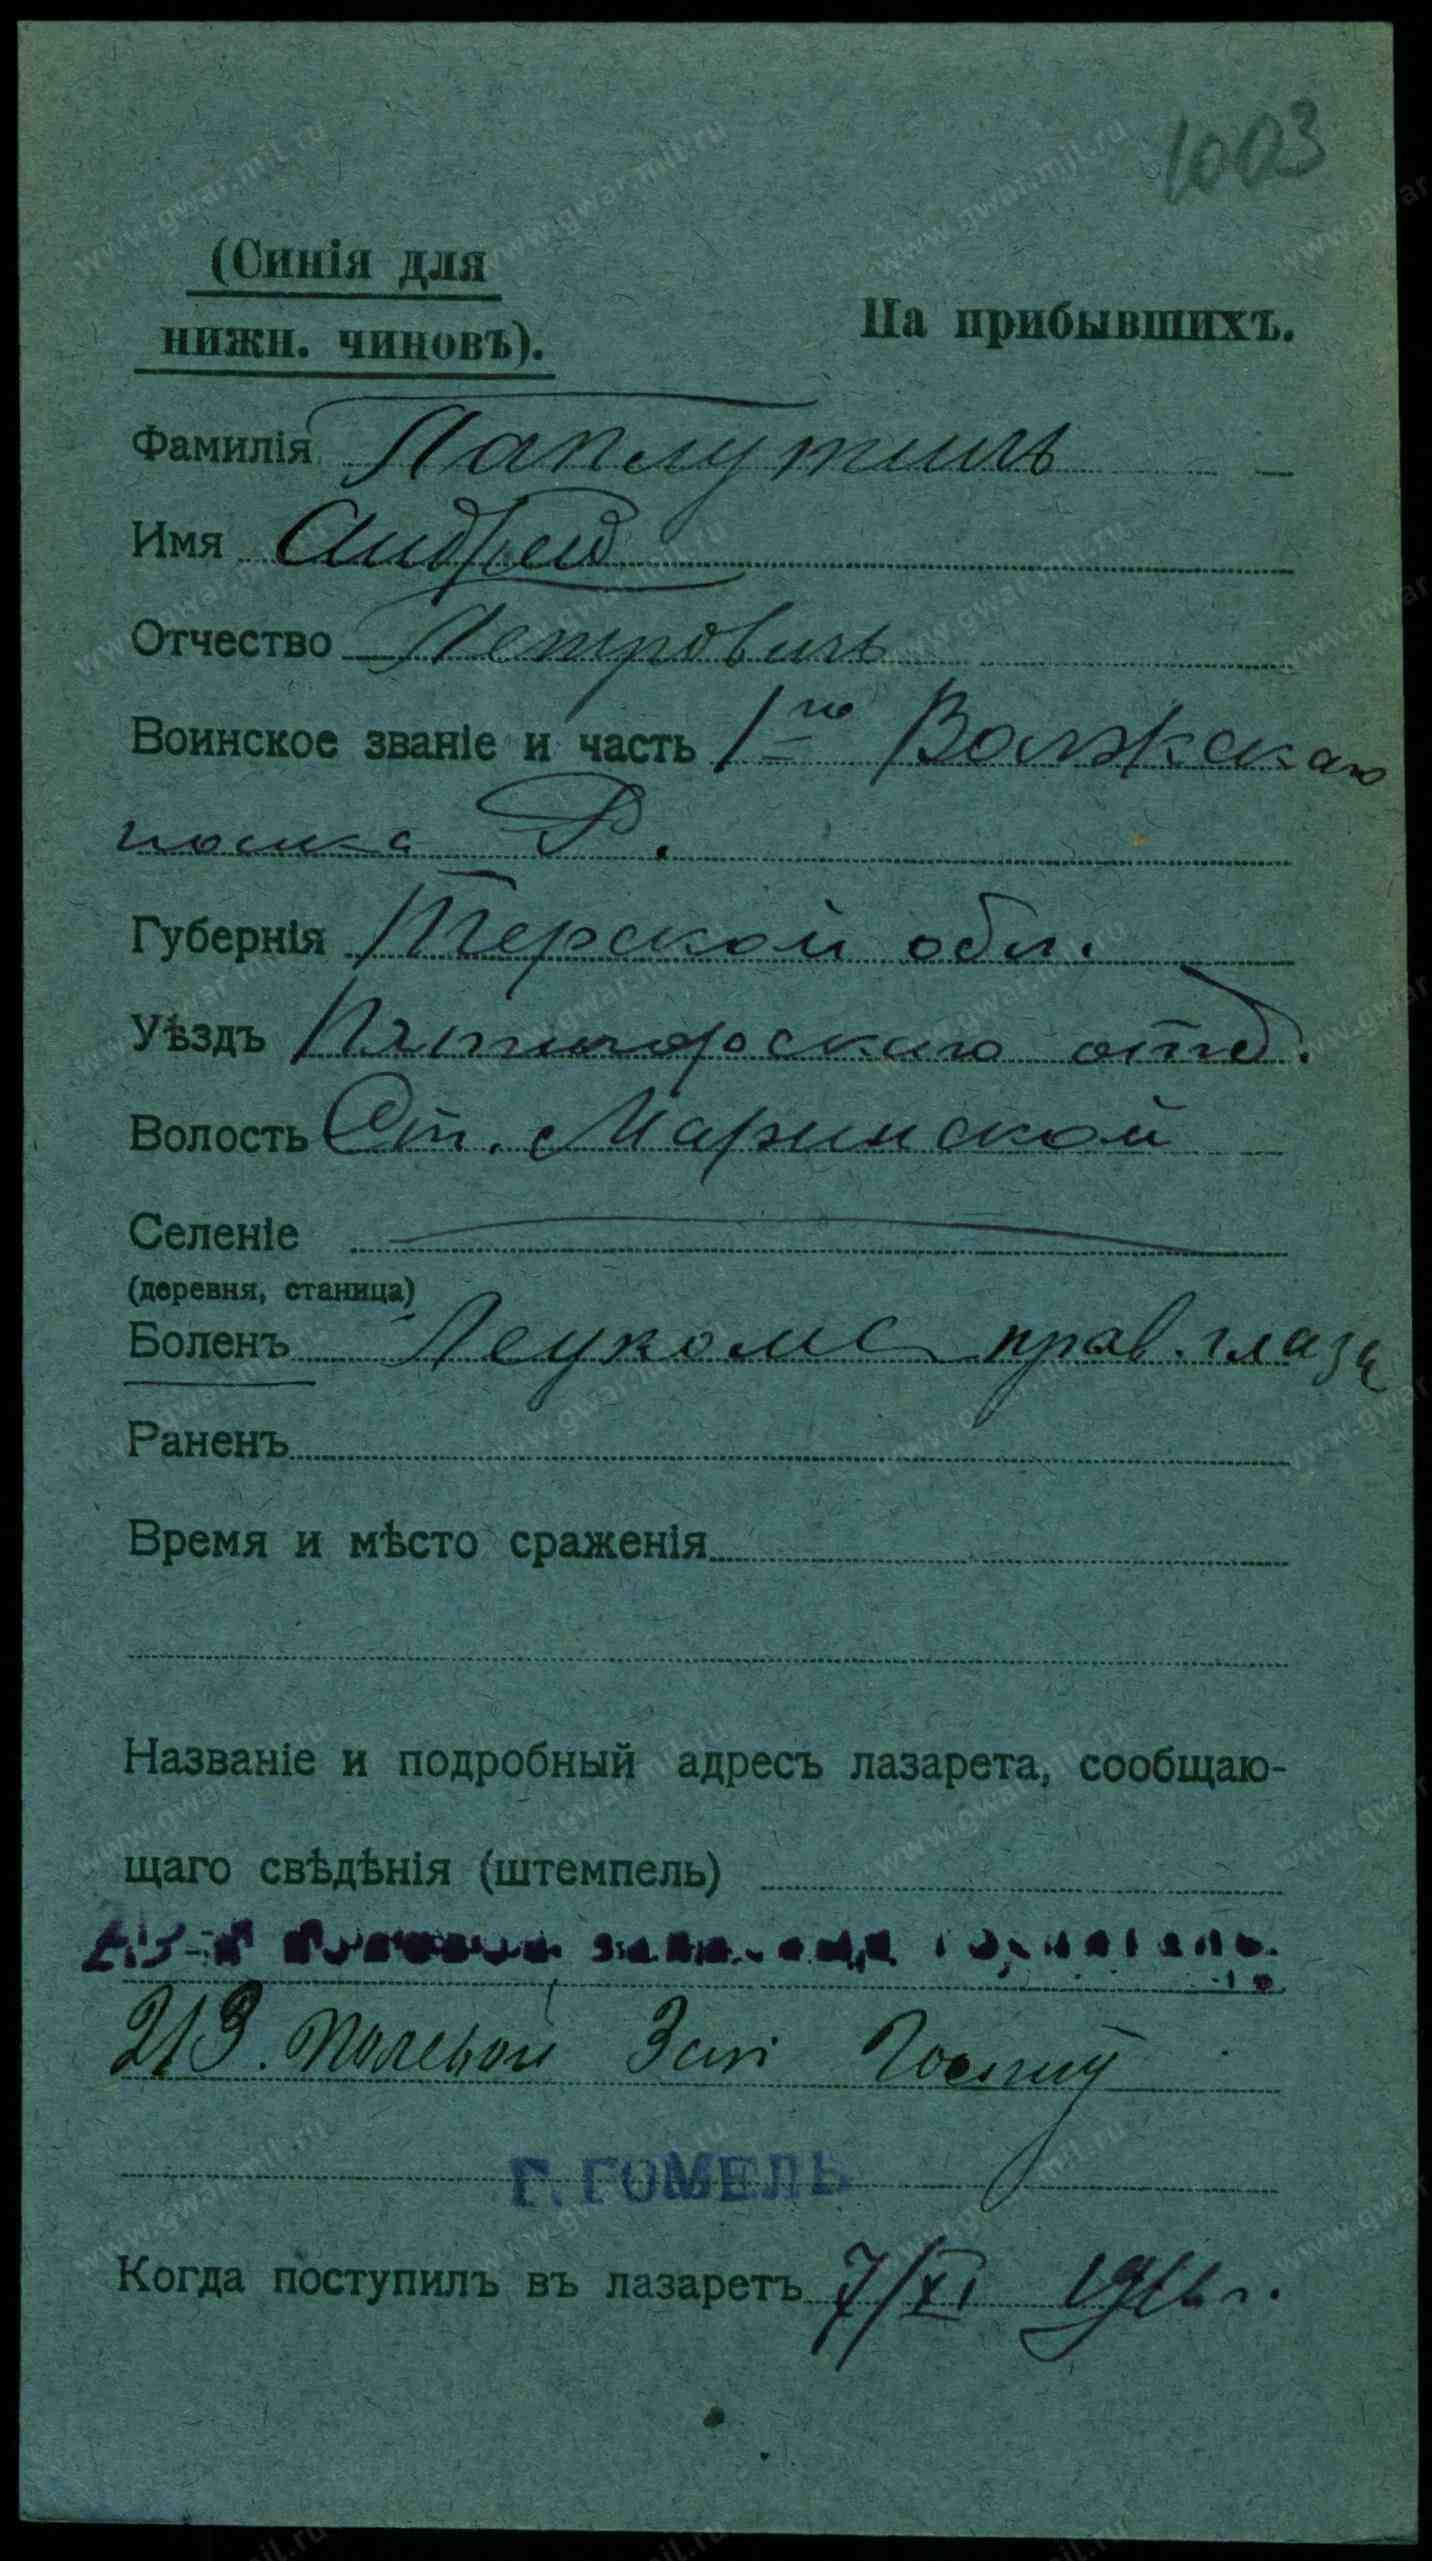 1003
(Синія для
нижн. чиновъ).
На прибывшихъ.
Фамилія Паплутинъ
Имя Андрей
Отчество Петровичъ
Воинское званіе и часть 1го Волжскаго
полка Р.
Губернія Терской обл.
Уѣздъ Пятигорскаго отд.
Волость Ст. Маринской
Селеніе
(деревня, станица)
Боленъ Леукома прав. глаза
Раненъ
Время и мѣсто сраженія
Названіе и подробный адресъ лазарета, сообщаю-
щаго свѣдѣнія (штемпель)
213. Полевой Зап Госпит
Г. ГОМЕЛЬ
Когда поступилъ въ лазаретъ 7/XI 1916 г.
www.gwar.mil.ru